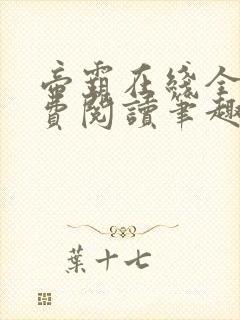 帝霸在綫全
費閱讀筆趣
葉十七